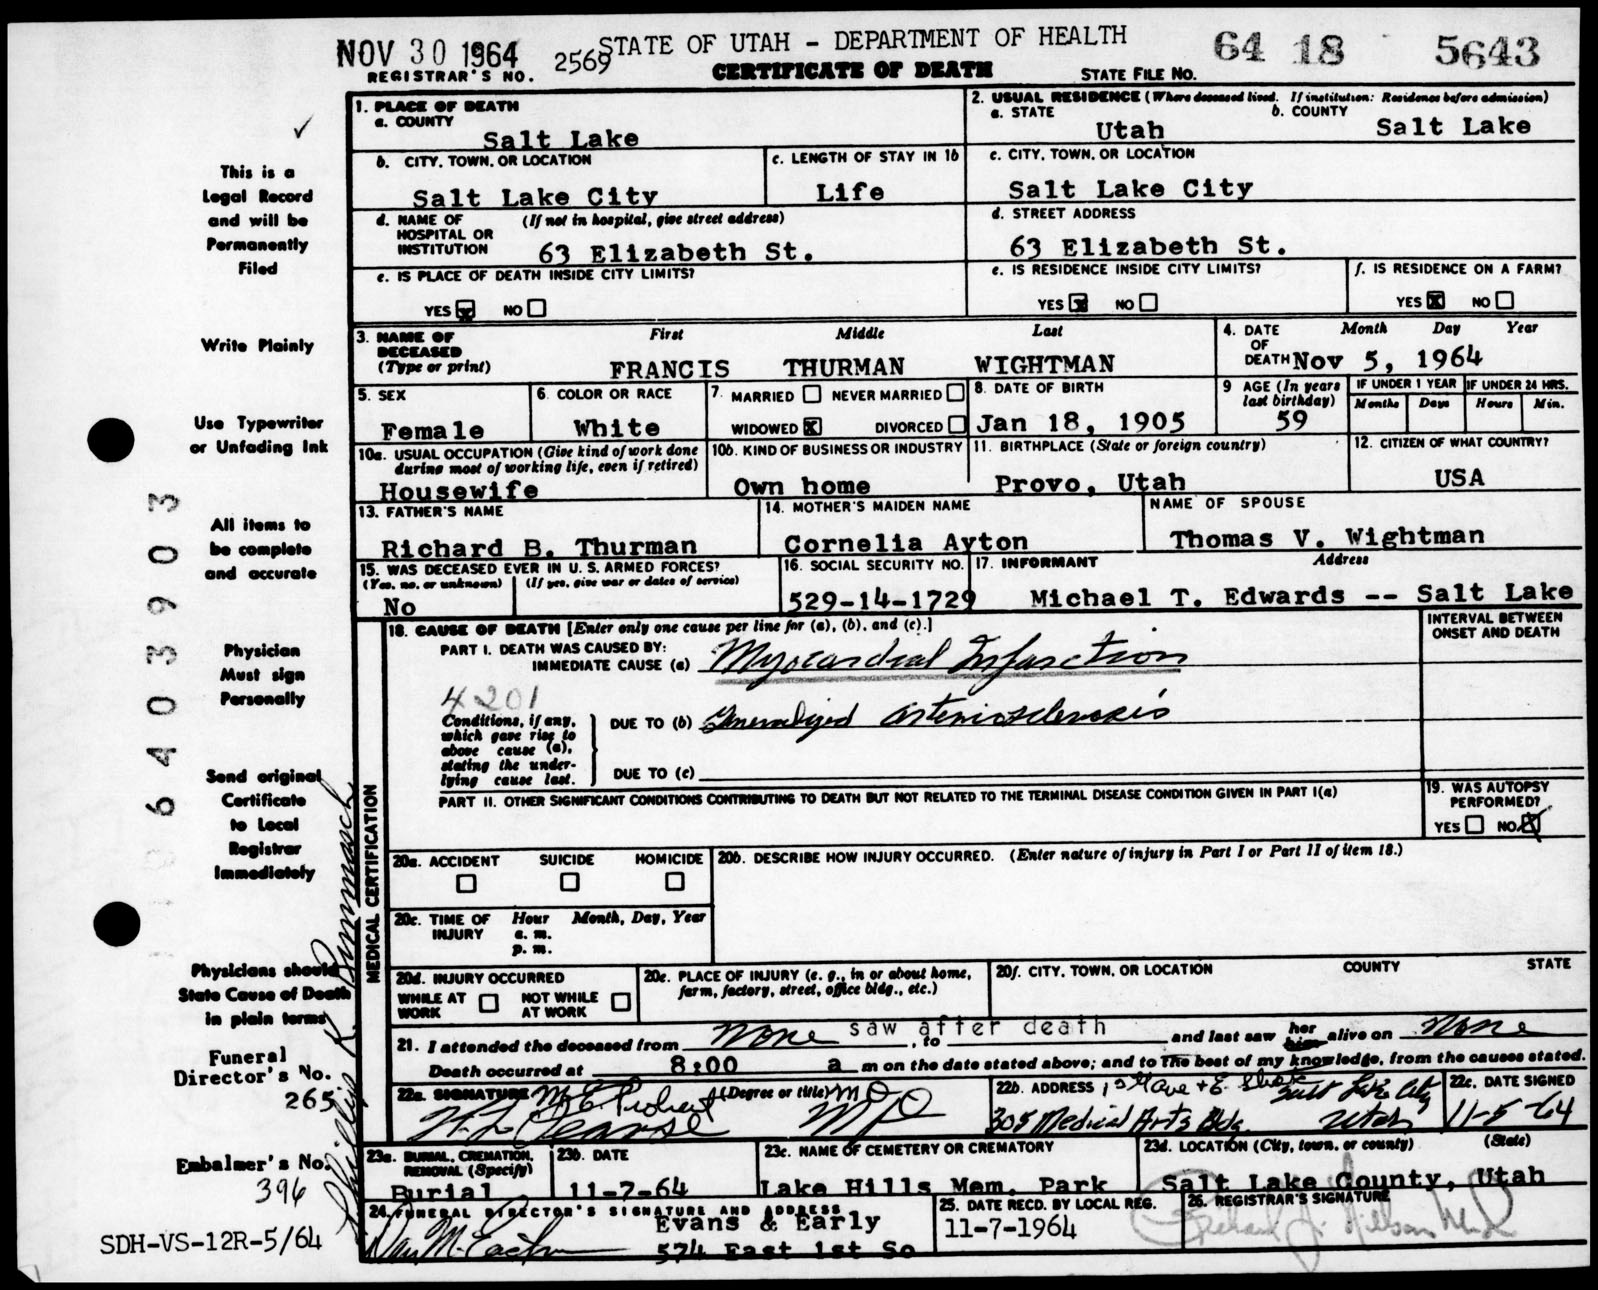 NOV 30 1964 2569 STATE OF UTAH - DEPARTMENT OF HEALTH 64 18 5643
REGISTRAR'S NO. CERTIFICATE OF DEATH STATE FILE NO.
1. PLACE OF DEATH
a. COUNTY
Salt Lake
2. USUAL RESIDENCE (Where deceased lived. If institution: Residence before admission)
a. STATE b. COUNTY
Utah Salt Lake
b. CITY, TOWN, OR LOCATION
Salt Lake City
c. LENGTH OF STAY IN 1b
Life
c. CITY, TOWN, OR LOCATION
Salt Lake City
d. NAME OF HOSPITAL OR INSTITUTION (If not in hospital, give street address)
63 Elizabeth St.
d. STREET ADDRESS
63 Elizabeth St.
e. IS PLACE OF DEATH INSIDE CITY LIMITS?
YES x NO
e. IS RESIDENCE INSIDE CITY LIMITS?
YES x NO
f. IS RESIDENCE ON A FARM?
YES x NO
3. NAME OF DECEASED (Type or print)
First Middle Last
FRANCIS THURMAN WIGHTMAN
4. DATE OF DEATH Month Day Year
Nov 5, 1964
5. SEX
Female
6. COLOR OR RACE
White
7. MARRIED NEVER MARRIED
WIDOWED X DIVORCED
8. DATE OF BIRTH
Jan 18, 1905
9 AGE (In years last birthday)
59
IF UNDER 1 YEAR IF UNDER 24 HRS.
Months Days Hours Min.
10a. USUAL OCCUPATION (Give kind of work done during most of working life, even if retired)
Housewife
10b. KIND OF BUSINESS OR INDUSTRY
Own home
11. BIRTHPLACE (State or foreign country)
Provo, Utah
12. CITIZEN OF WHAT COUNTRY?
USA
13. FATHER'S NAME
Richard B. Thurman
14. MOTHER'S MAIDEN NAME
Cornelia Ayton
NAME OF SPOUSE
Thomas V. Wightman
15. WAS DECEASED EVER IN U.S. ARMED FORCES?
(Yes, no, or unknown) (If yes, give war or dates of service)
No
16. SOCIAL SECURITY NO.
529-14-1729
17. INFORMANT Address
Michael T. Edwards -- Salt Lake
18. CAUSE OF DEATH [Enter only one cause per line for (a), (b), and (c).]
INTERVAL BETWEEN ONSET AND DEATH
PART I. DEATH WAS CAUSED BY:
IMMEDIATE CAUSE (a) Myocardial Infarction
4201
Conditions, if any, which gave rise to above cause (a), stating the underlying cause last.
DUE TO (b) Generalized arteriosclerosis
DUE TO (c)
PART II. OTHER SIGNIFICANT CONDITIONS CONTRIBUTING TO DEATH BUT NOT RELATED TO THE TERMINAL DISEASE CONDITION GIVEN IN PART I(a)
19. WAS AUTOPSY PERFORMED?
YES NO X
MEDICAL CERTIFICATION
20a. ACCIDENT SUICIDE HOMICIDE
20b. DESCRIBE HOW INJURY OCCURRED. (Enter nature of injury in Part I or Part II of item 18.)
20c. TIME OF INJURY Hour Month, Day, Year
a. m.
p. m.
20d. INJURY OCCURRED
WHILE AT WORK NOT WHILE AT WORK
20e. PLACE OF INJURY (e. g., in or about home, farm, factory, street, office bldg., etc.)
20f. CITY, TOWN, OR LOCATION COUNTY STATE
21. I attended the deceased from None saw after death, to and last saw her him alive on None
Death occurred at 8:00 a m on the date stated above; and to the best of my knowledge, from the causes stated.
22a. SIGNATURE (Degree or title) M D
MD
22b. ADDRESS
Salt Lake City
305 Medical Arts Bldg. Utah
22c. DATE SIGNED
11-5-64
23a. BURIAL, CREMATION, REMOVAL (Specify)
Burial
23b. DATE
11-7-64
23c. NAME OF CEMETERY OR CREMATORY
Lake Hills Mem. Park
23d. LOCATION (City, town, or county) (State)
Salt Lake County, Utah
24. FUNERAL DIRECTOR'S SIGNATURE AND ADDRESS
Evans & Early
574 East 1st So
25. DATE RECD. BY LOCAL REG.
11-7-1964
26. REGISTRAR'S SIGNATURE
This is a
Legal Record
and will be
Permanently
Filed
Write Plainly
Use Typewriter
or Unfading Ink
All items to
be complete
and accurate
Physician
Must sign
Personally
Send original
Certificate
to Local
Registrar
Immediately
Physicians should
State Cause of Death
in plain terms
Funeral
Director's No.
265
Embalmer's No.
396
SDH-VS-12R-5/64
6403903